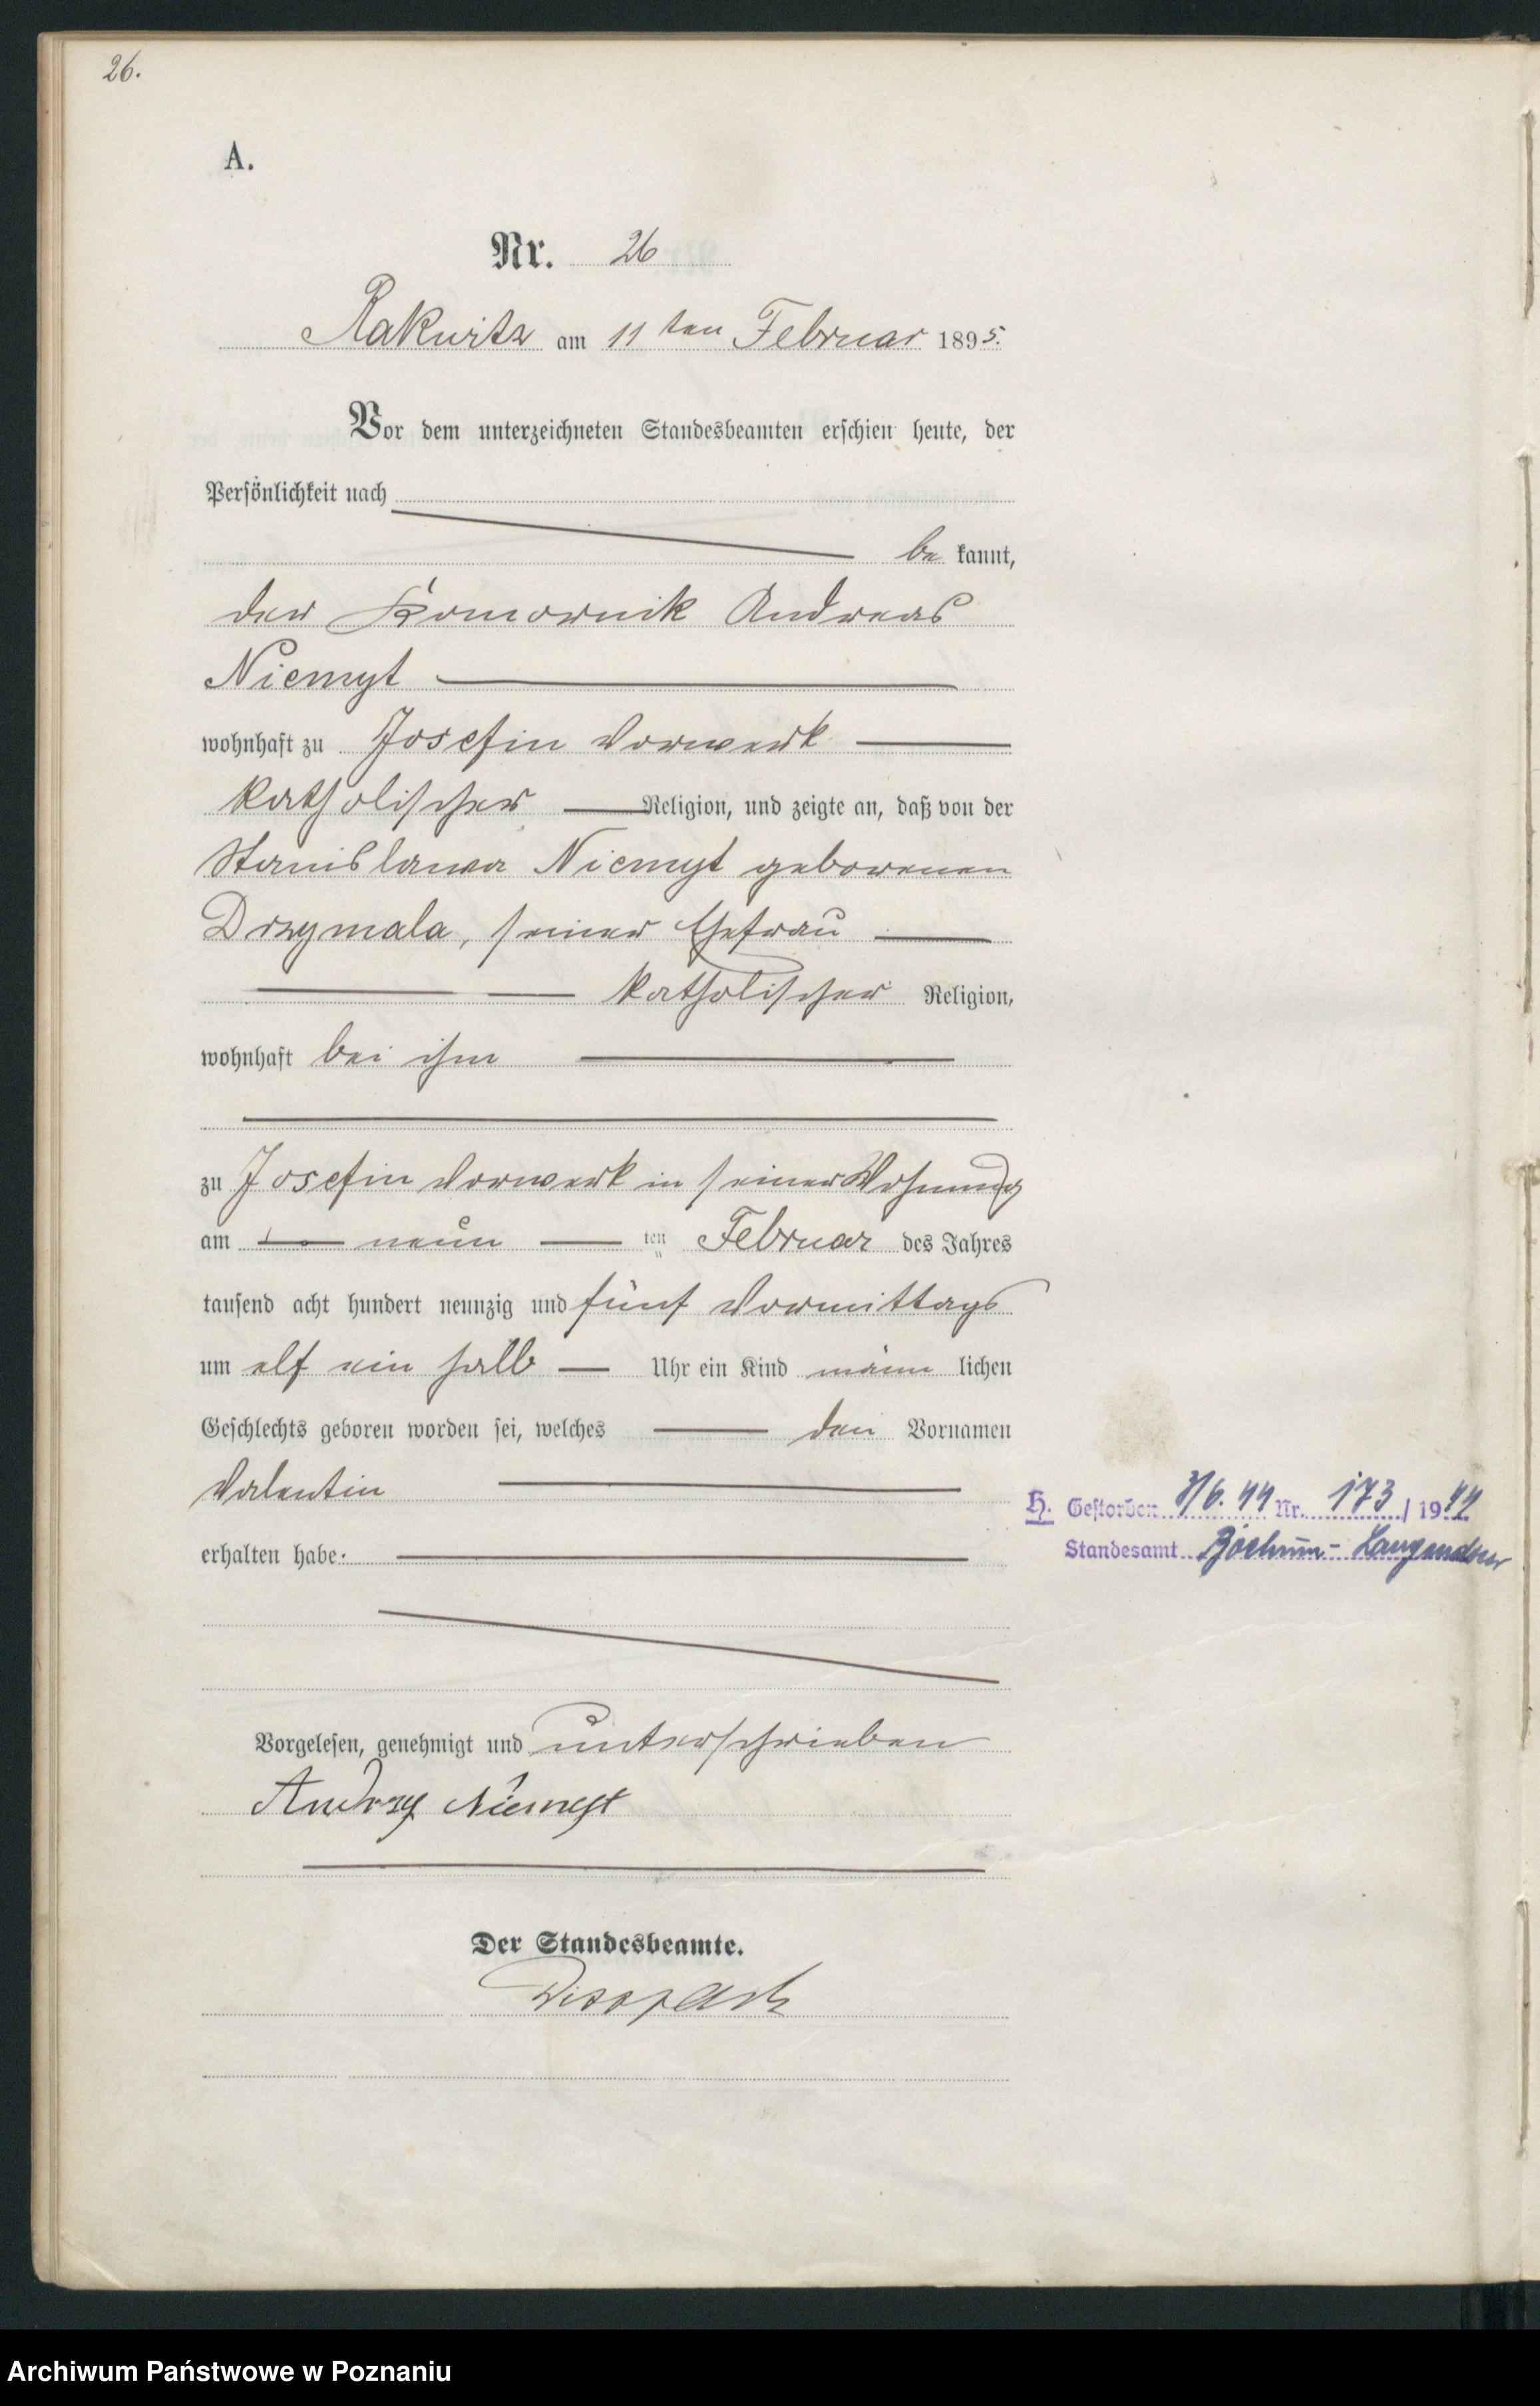 26.
A.
Nr. 26
Rakwitz am 11ten Februar 1895.
Vor dem unterzeichneten Standesbeamten erschien heute, der
Persönlichkeit nach
be kannt,
der Komornik Andreas
Niemyt
wohnhaft zu Josefin Vorwerk
katholischer Religion, und zeigte an, daß von der
Stanislawa Niemyt geborenen
Drzymala, seiner Ehefrau
katholischer Religion,
wohnhaft bei ihm
zu Josefin Vorwerk in seiner Wohnung
am neun ten Februar des Jahres
tausend acht hundert neunzig und fünf Vormittags
um elf ein halb Uhr ein Kind männ lichen
Geschlechts geboren worden sei, welches den Vornamen
Valentin
H. Gestorben 3/6. 44 Nr. 173 / 1944
Standesamt Bochum - Langendreer
erhalten habe.
Vorgelesen, genehmigt und unterschrieben
Andrzy Niemyt
Der Standesbeamte.
Archiwum Państwowe w Poznaniu